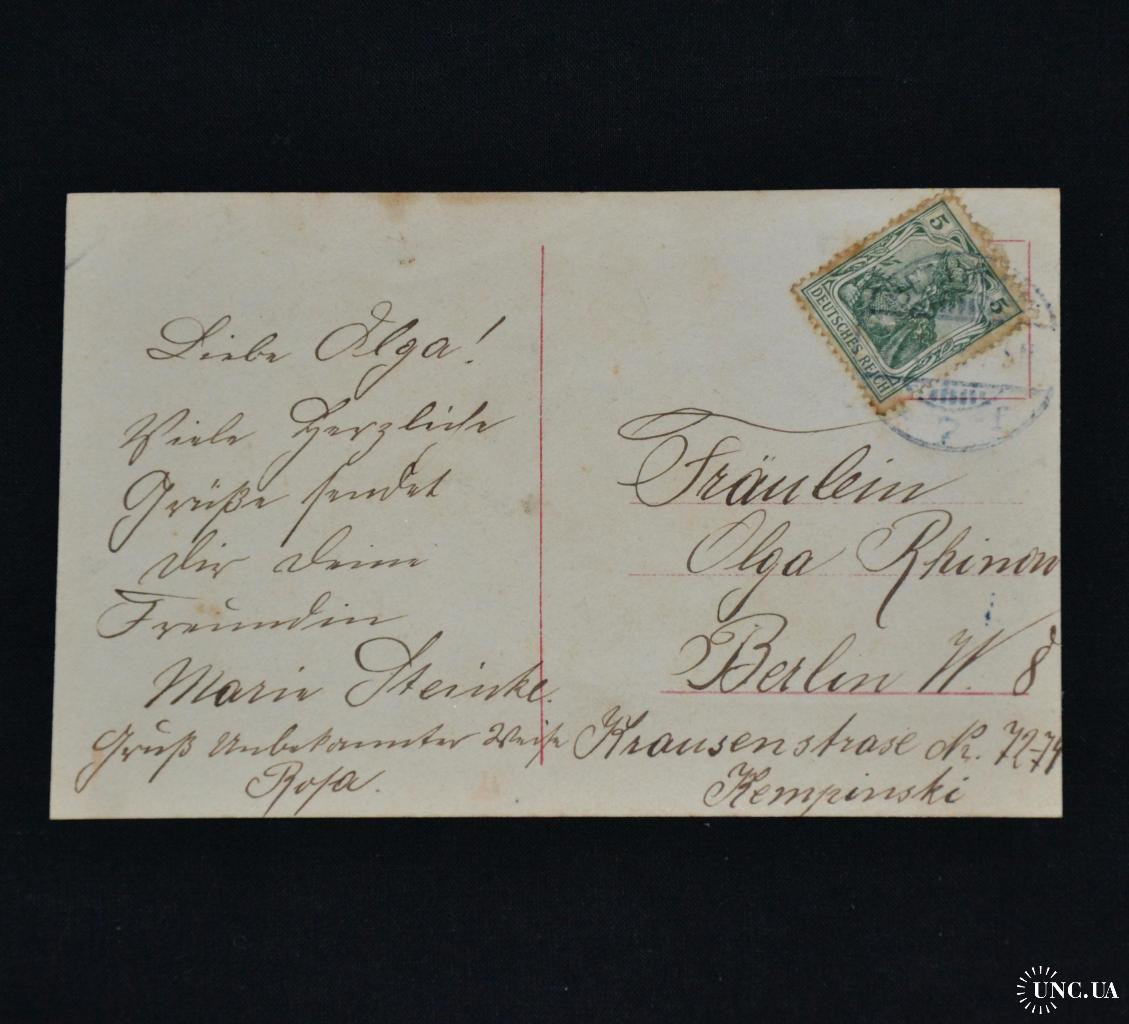 Liebe Olga!
Viele Herzliche
Grüße sendet
dir deine
Freundin
Marie Steinke.
Gruß Unbekannter Weise
Rosa.
5
5
DEUTSCHES REICH
Fräulein
Olga Rhinow
Berlin W. 8
Krausenstrase Nr. 72-74
Kempinski
UNC.UA